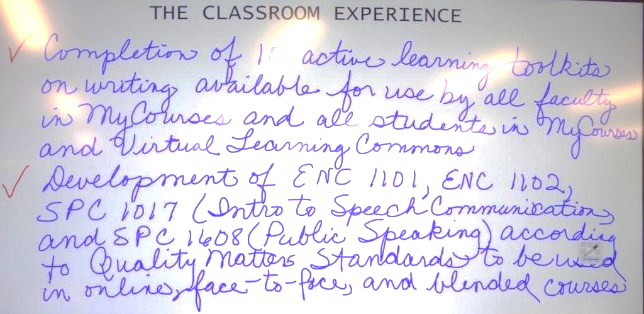 THE CLASSROOM EXPERIENCE
Completion of active learning toolkits
on writing available for use by all faculty
in MyCourses and all students in MyCourses
and Virtual Learning Commons
Development of ENC 1101, ENC 1102,
SPC 1017 (Intro to Speech Communication)
and SPC 1608 (Public Speaking) according
to Quality Matters Standards to be used
in online, face-to-face, and blended courses